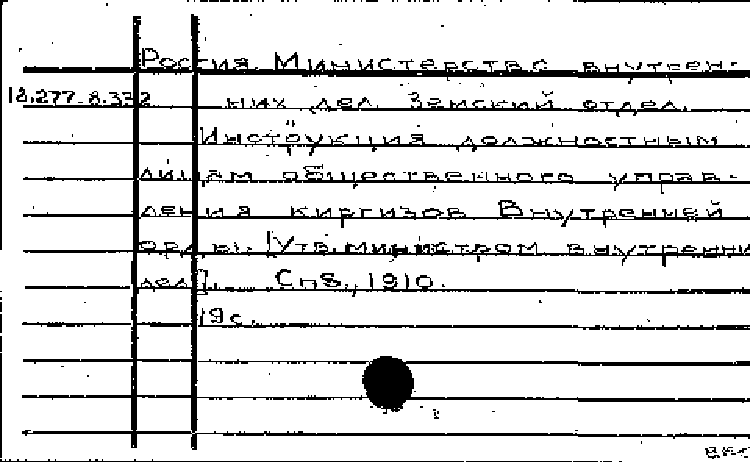 Россия. Министерство внутрен-
18.277.8.332
них дел. Земский отдел.
Инструкция должностным
лицам общественного управ-
ления киргизов Внутренней
орды. [Утв. министром внутренни
дел]. Спб., 1910.
19с.